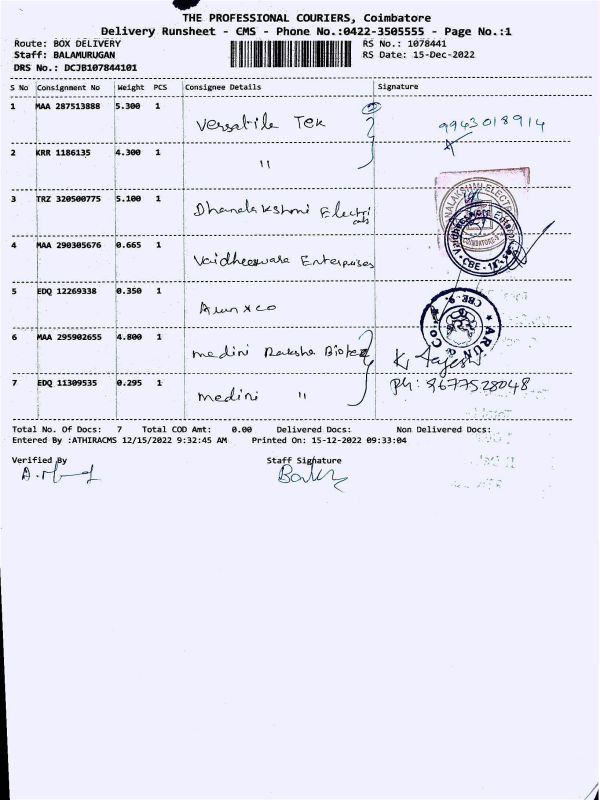 THE PROFESSIONAL COURIERS, Coimbatore
Delivery Runsheet - CMS - Phone No.:0422-3505555 - Page No.:1
Route: BOX DELIVERY RS No.: 1078441
Staff: BALAMURUGAN RS Date: 15-Dec-2022
DRS No.: DCJB107844101
S No Consignment No Weight PCS Consignee Details Signature
1 MAA 287513888 5.300 1 Versatile Tek 9943018914
2 KRR 1186135 4.300 1 "
3 TRZ 320500775 5.100 1 Dhanalakshmi Electri
cals
4 MAA 290305676 0.665 1 Vaidheeswara Enterprises
COIMBATORE-9
CBE
5 EDQ 12269338 0.350 1 Arun & co
ARUN & CO CBE-9
6 MAA 295902655 4.800 1 medini Raksha Biotec
7 EDQ 11309535 0.295 1 medini " Ph: 8677528048
Total No. Of Docs: 7 Total COD Amt: 0.00 Delivered Docs: Non Delivered Docs:
Entered By :ATHIRACMS 12/15/2022 9:32:45 AM Printed On: 15-12-2022 09:33:04
Verified By Staff Signature